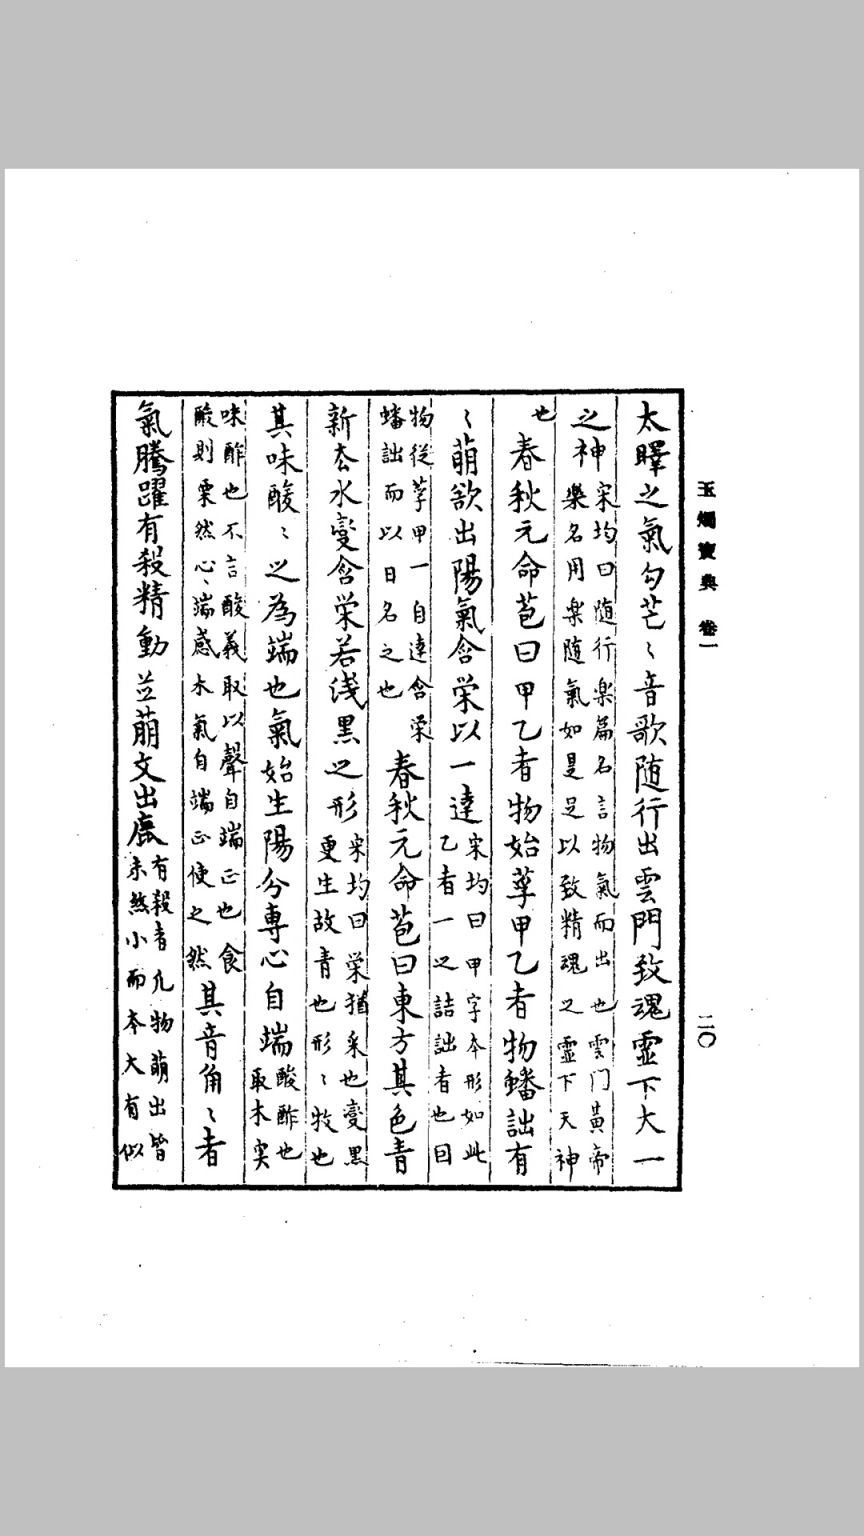 玉燭寶典 卷一
二〇
太曎之氣勾芒〻音歌随行出雲門致魂霊下大一
之神宋均曰随行楽篇名言物氣而出也雲门黃帝
楽名用楽随氣如是足以致精魂之霊下天神
也春秋元命苞曰甲乙者物始莩甲乙者物蟠詘有
〻萌欲出陽氣含栄以一達宋均曰甲字夲形如此
乙者一之詰詘者也囙
物従莩甲一自達含栄
蟠詘而以日名之也春秋元命苞曰東方其色青
新厺水變含栄若浅黒之形宋均曰栄猶采也變黒
更生故青也形〻牧也
其味酸〻之為端也氣始生陽分専心自端酸酢也
取木実
味酢也不言酸義取以聲自端正也食
酸則栗然心〻端感木氣自端正使之然其音角〻者
氣騰躍有殺精動並萠文出鹿有殺者凢物萠出皆
未煞小而夲大有似